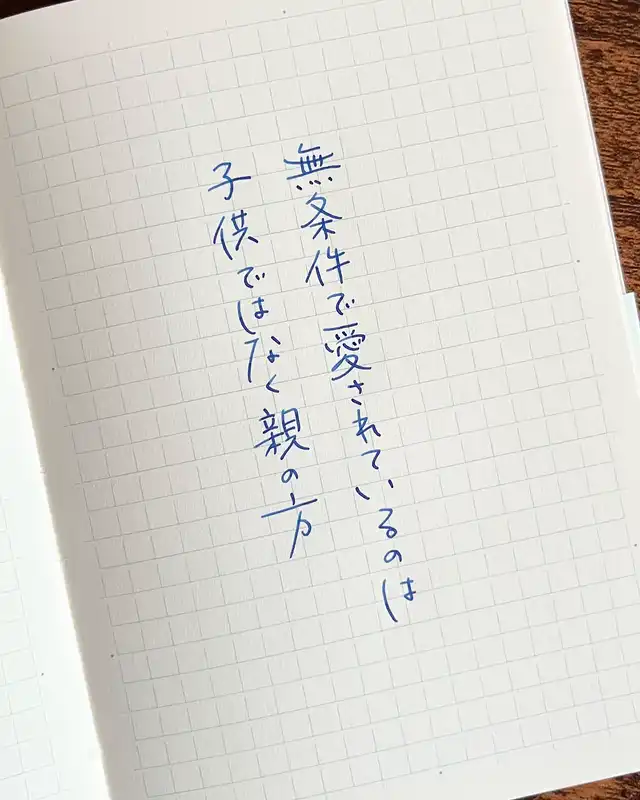 無条件で愛されているのは
子供ではなく親の方